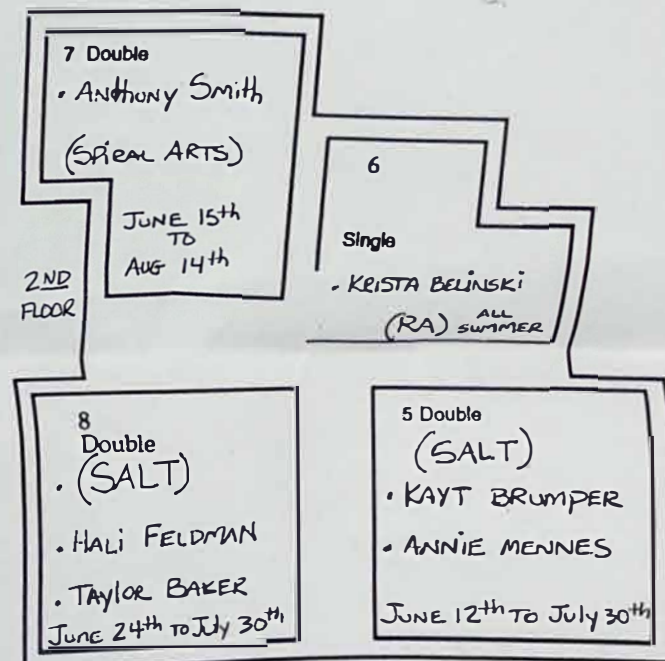 7 Double
• ANTHONY SMITH
(SPIRAL ARTS)
JUNE 15th
TO
AUG 14th
2ND
FLOOR
6
Single
• KRISTA BELINSKI
(RA) ALL SUMMER
8
Double
• (SALT)
• HALI FELDMAN
• TAYLOR BAKER
JUNE 24th TO July 30th
5 Double
(SALT)
• KAYT BRUMPER
• ANNIE MENNES
JUNE 12th TO July 30th